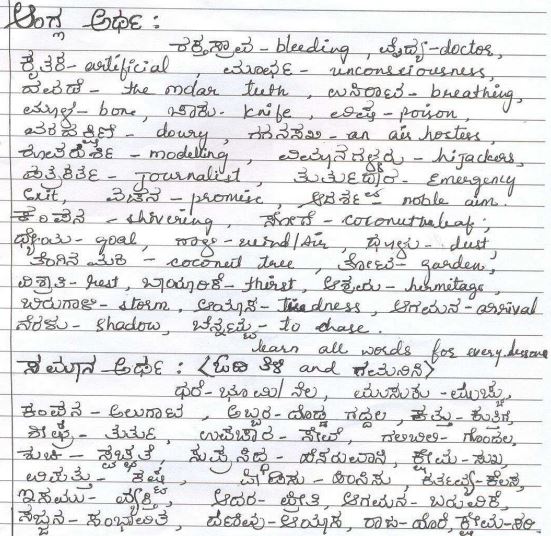 ಆಂಗ್ಲ ಅರ್ಥ :
ರಕ್ತಸ್ರಾವ - bleeding, ವೈದ್ಯ - doctor,
ಕೃತಕ - artificial, ಮೂರ್ಛೆ - unconsciousness,
ದವಡೆ - the molar teeth, ಉಸಿರಾಟ - breathing,
ಮೂಳೆ - bone, ಚಾಕು - knife, ವಿಷ - poison,
ವರದಕ್ಷಿಣೆ - dowry, ಗಗನಸಖಿ - an air hostess,
ರೂಪದರ್ಶಿ - modelling, ವಿಮಾನಗಳ್ಳರು - hijackers,
ಪತ್ರಕರ್ತ - journalist, ತುರ್ತುದ್ವಾರ - Emergency
Exit, ವಚನ - promise, ಆದರ್ಶ - noble aim.
ಕಂಪನ - shivering, ಸೋಗೆ - coconutleaf;
ಧ್ಯೇಯ - goal, ಗಾಳಿ - wind/air, ಧೂಳು - dust,
ತೆಂಗಿನ ಮರ - coconut tree, ತೋಟ - garden,
ವಿಶ್ರಾಂತಿ - rest, ಬಾಯಾರಿಕೆ - thirst, ಆಶ್ರಮ - hermitage,
ಬಿರುಗಾಳಿ - storm, ಆಯಾಸ - tiredness, ಆಗಮನ - arrival
ನೆರಳು - shadow, ಬೆನ್ನಟ್ಟು - to chase.
learn all words for every lesson
ಸಮಾನ ಅರ್ಥ : <ಓದಿ ತಿಳಿ and ಗಮನಿಸಿ>
ಧರೆ - ಭೂಮಿ/ನೆಲ, ಮುಸುಕು - ಮುಚ್ಚು,
ಕಂಪನ - ಅಲುಗಾಟ, ಅಬ್ಬರ - ದೊಡ್ಡ ಗದ್ದಲ, ಕತ್ತು - ಕುತ್ತಿಗೆ,
ಶೀಘ್ರ - ತುರ್ತು, ಉಪಚಾರ - ಸೇವೆ, ಗಲಿಬಿಲಿ - ಗೊಂದಲ,
ಶುಚಿ - ಸ್ವಚ್ಛತೆ, ಸುಪ್ರಸಿದ್ಧ - ಹೆಸರುವಾಸಿ, ಕ್ಷೇಮ - ಸುಖ,
ವಿಪತ್ತು - ಕಷ್ಟ, ಪೀಡಿಸು - ಹಿಂಸಿಸು, ಕರ್ತವ್ಯ - ಕೆಲಸ,
ಇಸಮು - ವ್ಯಕ್ತಿ, ಆದರ - ಪ್ರೀತಿ, ಆಗಮನ - ಬರುವಿಕೆ,
ಸಜ್ಜನ - ಸಂಭಾವಿತ, ದಣಿವು - ಆಯಾಸ, ರಾಜ - ದೊರೆ, ಕ್ಷೇಮ - ಸರಿ.